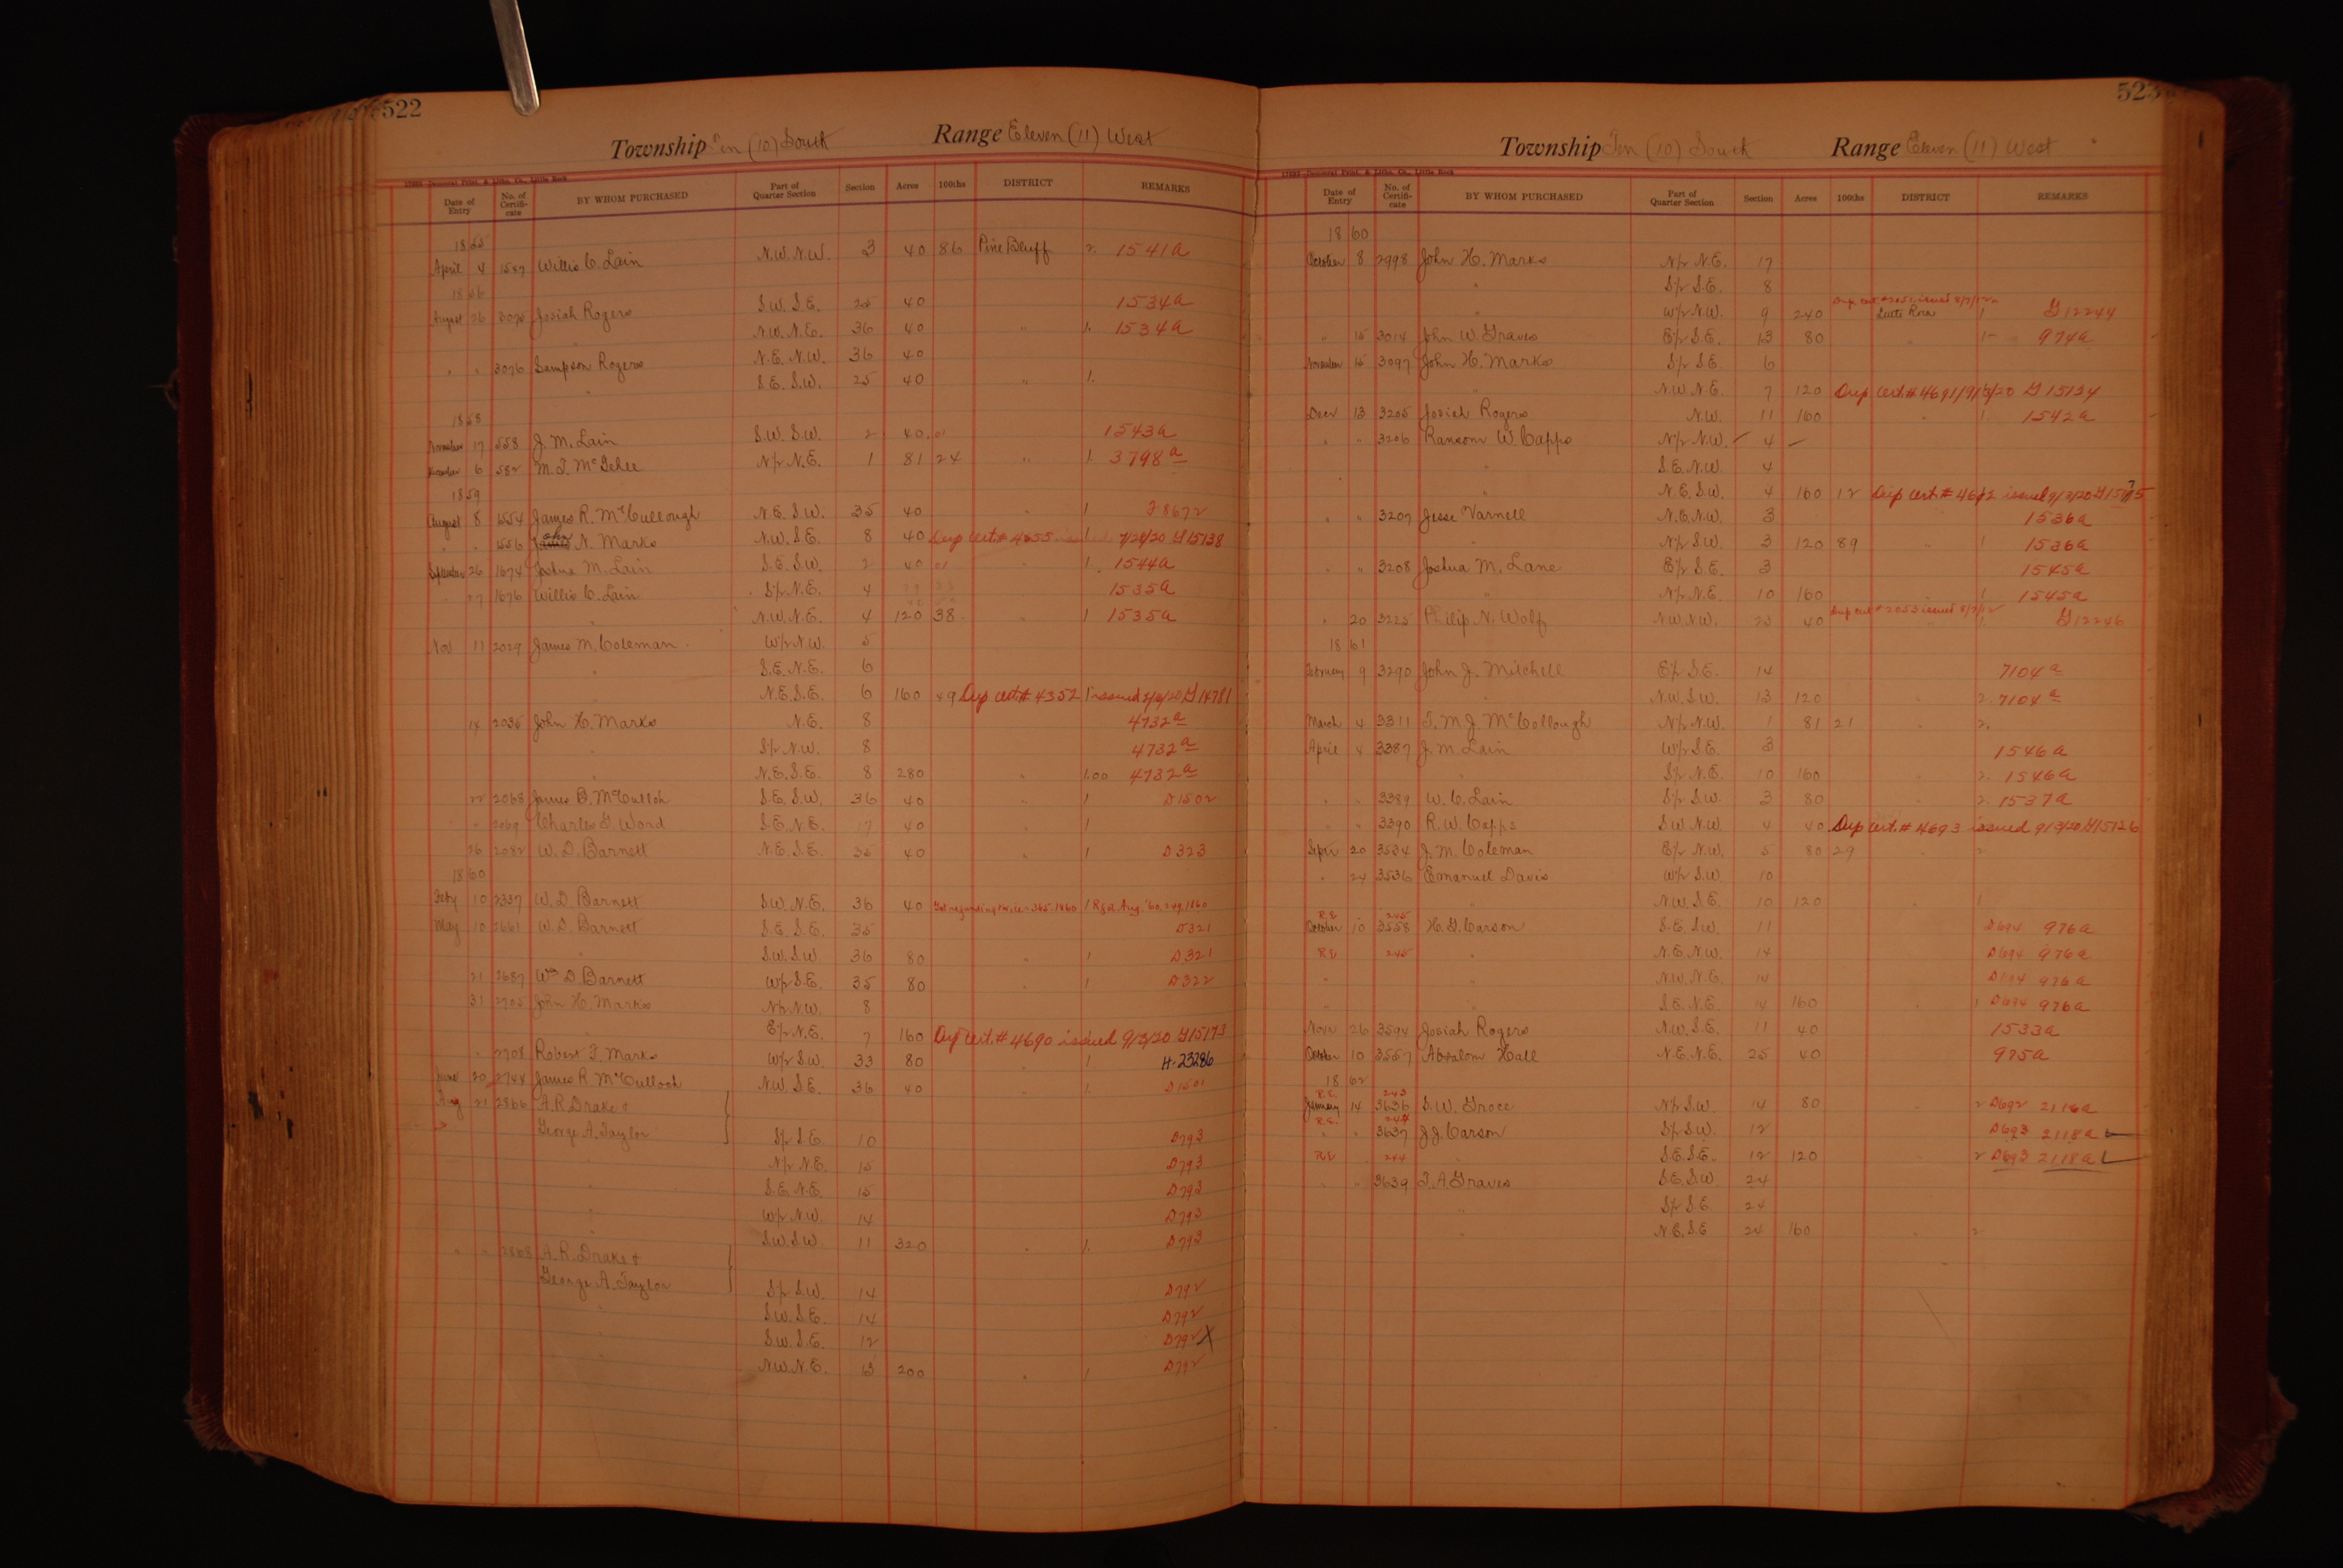 522
Township Ten (10) South Range Eleven (11) West
Democrat Print. & Litho. Co., Little Rock
Date of Entry No. of Certificate BY WHOM PURCHASED Part of Quarter Section Section Acres 100ths DISTRICT REMARKS
1855
April 4 1587 Willis C. Lain N.W. N.W. 3 40 86 Pine Bluff 2. 1541a
1856
August 26 3075 Josiah Rogers S.W. S.E. 25 40 1534a
" N.W. N.E. 36 40 " 1. 1534a
" " 3076 Sampson Rogers N.E. N.W. 36 40
" S.E. S.W. 25 40 " 1.
1858
November 17 558 J. M. Lain S.W. S.W. 2 40. 01 1543a
6 582 M. T. McGehee N/2 N.E. 1 81 24 " 1. 3798a
1859
August 8 1554 James R. McCullough N.E. S.W. 35 40 " 1 F8672
" " 1556 John N. Marks N.W. S.E. 8 40 Dup Cert. # 4655 1 7/28/20 G15138
September 26 1674 Joshua M. Lain S.E. S.W. 2 40 01 " 1. 1544a
27 1676 Willis C. Lain S/2 N.E. 4 1535a
" N.W. N.E. 4 120 38 " 1 1535a
Nov 11 2029 James M. Coleman W/2 N.W. 5
" S.E. N.E. 6
" N.E. S.E. 6 160 49 Dup Cert. # 4352 issued 5/6/20 G14781
14 2035 John H. Marks N.E. 8 4732a
" S/2 N.W. 8 4732a
" N.E. S.E. 8 280 " 1.00 4732a
22 2068 James R. McCulloh S.E. S.W. 36 40 " 1 D1502
" " 2069 Charles G. Word S.E. N.E. 17 40 " 1
26 2082 W. D. Barnett N.E. S.E. 35 40 " 1 D323
1860
Feby 10 2337 W. D. Barnett S.W. N.E. 36 40
May 10 2661 W. D. Barnett S.E. S.E. 35 D321
" S.W. S.W 36 80 " 1 D321
21 2687 Wm D. Barnett W/2 S.E. 35 80 " 1 D322
31 2705 John H. Marks N/2 N.W. 8
" E/2 N.E. 7 160 Dup Cert. # 4690 issued 9/3/20 G15173
" 2708 Robert F. Marks W/2 S.W. 33 80 " 1 H-23286
June 20 2744 James R. McCulloch N.W. S.E. 36 40 " 1. D1501
Aug 21 2866 A. R. Drake &
George A. Taylor S/2 S.E. 10 D793
" N/2 N.E. 15 D793
" S.E. N.E. 15 D793
" W/2 N.W. 14 D793
" S.W. S.W. 11 320 " 1. D793
" " 2868 A. R. Drake &
George A. Taylor S/2 S.W. 14 D792
" S.W. S.E. 14 D792
" S.W. S.E. 12 D792 X
" N.W. N.E. 13 200 " 1 D792
523
Township Ten (10) South Range Eleven (11) West
Democrat Print. & Litho. Co., Little Rock
Date of Entry No. of Certificate BY WHOM PURCHASED Part of Quarter Section Section Acres 100ths DISTRICT REMARKS
1860
October 8 2998 John H. Marks N/2 N.E. 17
" S/2 S.E. 8
Dup. Cert # 2051 issued 8/7/12
" W/2 N.W. 9 240 Little Rock 1 G12244
" 15 3014 John W. Graves E/2 S.E. 13 80 " 1 974a
November 15 3097 John H. Marks S/2 S.E. 6
" N.W. N.E. 7 120 Dup Cert. # 4691/9/3/20 G15134
Decr 13 3205 Josiah Rogers N.W. 11 160 " 1. 1542a
" " 3206 Ransom W. Capps N/2 N.W. 4
" S.E. N.W. 4
" N.E. S.W. 4 160 12 Dup Cert # 4692 issued 9/3/20
" " 3207 Jesse Varnell N.E. N.W. 3 1536a
" N/2 S.W. 3 120 89 " 1 1536a
" " 3208 Joshua M. Lane E/2 S.E. 3 1545a
" N/2 N.E. 10 160 " 1 1545a
Dup Cert # 2053 issued 8/7/12
" 20 3225 Philip N. Wolf N.W. N.W. 23 40 " 1. G12246
1861
February 9 3290 John J. Mitchell E/2 S.E. 14 7104a
" N.W. S.W. 13 120 " 2. 7104a
March 4 3311 T. M. J. McCollough N/2 N.W. 1 81 21 2.
April 4 3387 J. M. Lain W/2 S.E. 3 1546a
" S/2 N.E. 10 160 " 2. 1546a
" " 3389 W. C. Lain S/2 S.W. 3 80 " 2. 1537a
" " 3390 R. W. Capps S.W. N.W. 4 40 Dup Cert. # 4693 issued 9/3/20 G15126
Septr 20 3534 J. M. Coleman E/2 N.W. 5 80 29 " 2
" 24 3536 Emanuel Davis W/2 S.W 10
N.W. S.E. 10 120 " 1
R.E. 245
October 10 3558 H. D. Carson S.E. S.W. 11 D694 976a
R.E 245 " N.E. N.W. 14 D694 976a
" " N.W. N.E. 14 D694 976a
" " S.E. N.E. 14 160 " 1 D694 976a
Novr 26 3594 Josiah Rogers N.W. S.E. 11 40 1533a
October 10 3557 Absalom Hall N.E. N.E. 25 40 " 975a
1862
R.E. 243
January 14 3636 S. W. Groce N/2 S.W. 14 80 " 2 D692 2116a
R.E. 244
" " 3637 J. J. Carson S/2 S.W. 12 D693 2118a
R.E 244 S.E. S.E. 12 120 " 2 D693 2118a
" " 3639 T. A Graves S.E. S.W 24
" S/2 S.E 24
" N.E. S.E 24 160 " 2